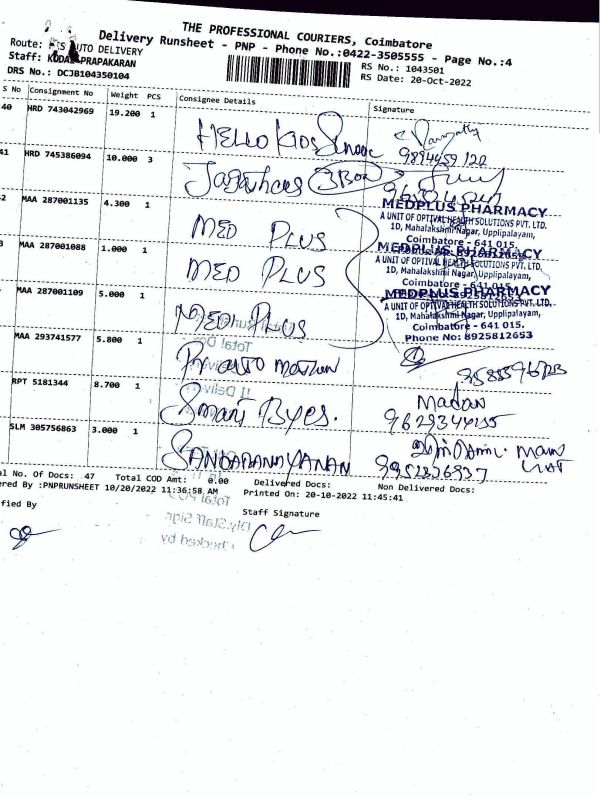 THE PROFESSIONAL COURIERS, Coimbatore
Delivery Runsheet - PNP - Phone No.:0422-3505555 - Page No.:4
Route: AUTO DELIVERY
Staff: PRAPAKARAN
DRS No.: DCJB104350104
RS No.: 1043501
RS Date: 20-Oct-2022
S No Consignment No Weight PCS Consignee Details Signature
40 HRD 743042969 19.200 1
HELLO Kids
9894459120
41 HRD 745386094 10.000 3
3 Box
2 MAA 287001135 4.300 1
MED PLUS
MEDPLUS PHARMACY
A UNIT OF OPTIVAL HEALTH SOLUTIONS PVT. LTD.
1D, Mahalakshmi Nagar, Upplipalayam,
Coimbatore - 641 015.
3 MAA 287001088 1.000 1
MED PLUS
MEDPLUS PHARMACY
A UNIT OF OPTIVAL HEALTH SOLUTIONS PVT. LTD.
1D, Mahalakshmi Nagar, Upplipalayam,
Coimbatore - 641 015.
MAA 287001109 5.000 1
MED PLUS
MEDPLUS PHARMACY
A UNIT OF OPTIVAL HEALTH SOLUTIONS PVT. LTD.
1D, Mahalakshmi Nagar, Upplipalayam,
Coimbatore - 641 015.
Phone No: 8925812653
MAA 293741577 5.800 1
RPT 5181344 8.700 1
Smart Byes.
Madan
9629344155
SLM 305756863 3.000 1
SANDARANAYANAN
9952236937
al No. Of Docs: 47 Total COD Amt: 0.00 Delivered Docs: Non Delivered Docs:
ered By :PNPRUNSHEET 10/20/2022 11:36:58 AM Printed On: 20-10-2022 11:45:41
fied By
Staff Signature